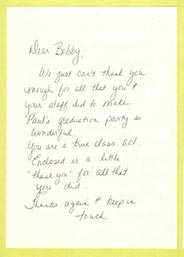 Dear Bobby,
We just can't thank you
enough for all that you &
your staff did to make
Paul's graduation party so
wonderful.
You are a true class act.
Enclosed is a little
"thank you" for all that
you did.
Thanks again & keep in
touch